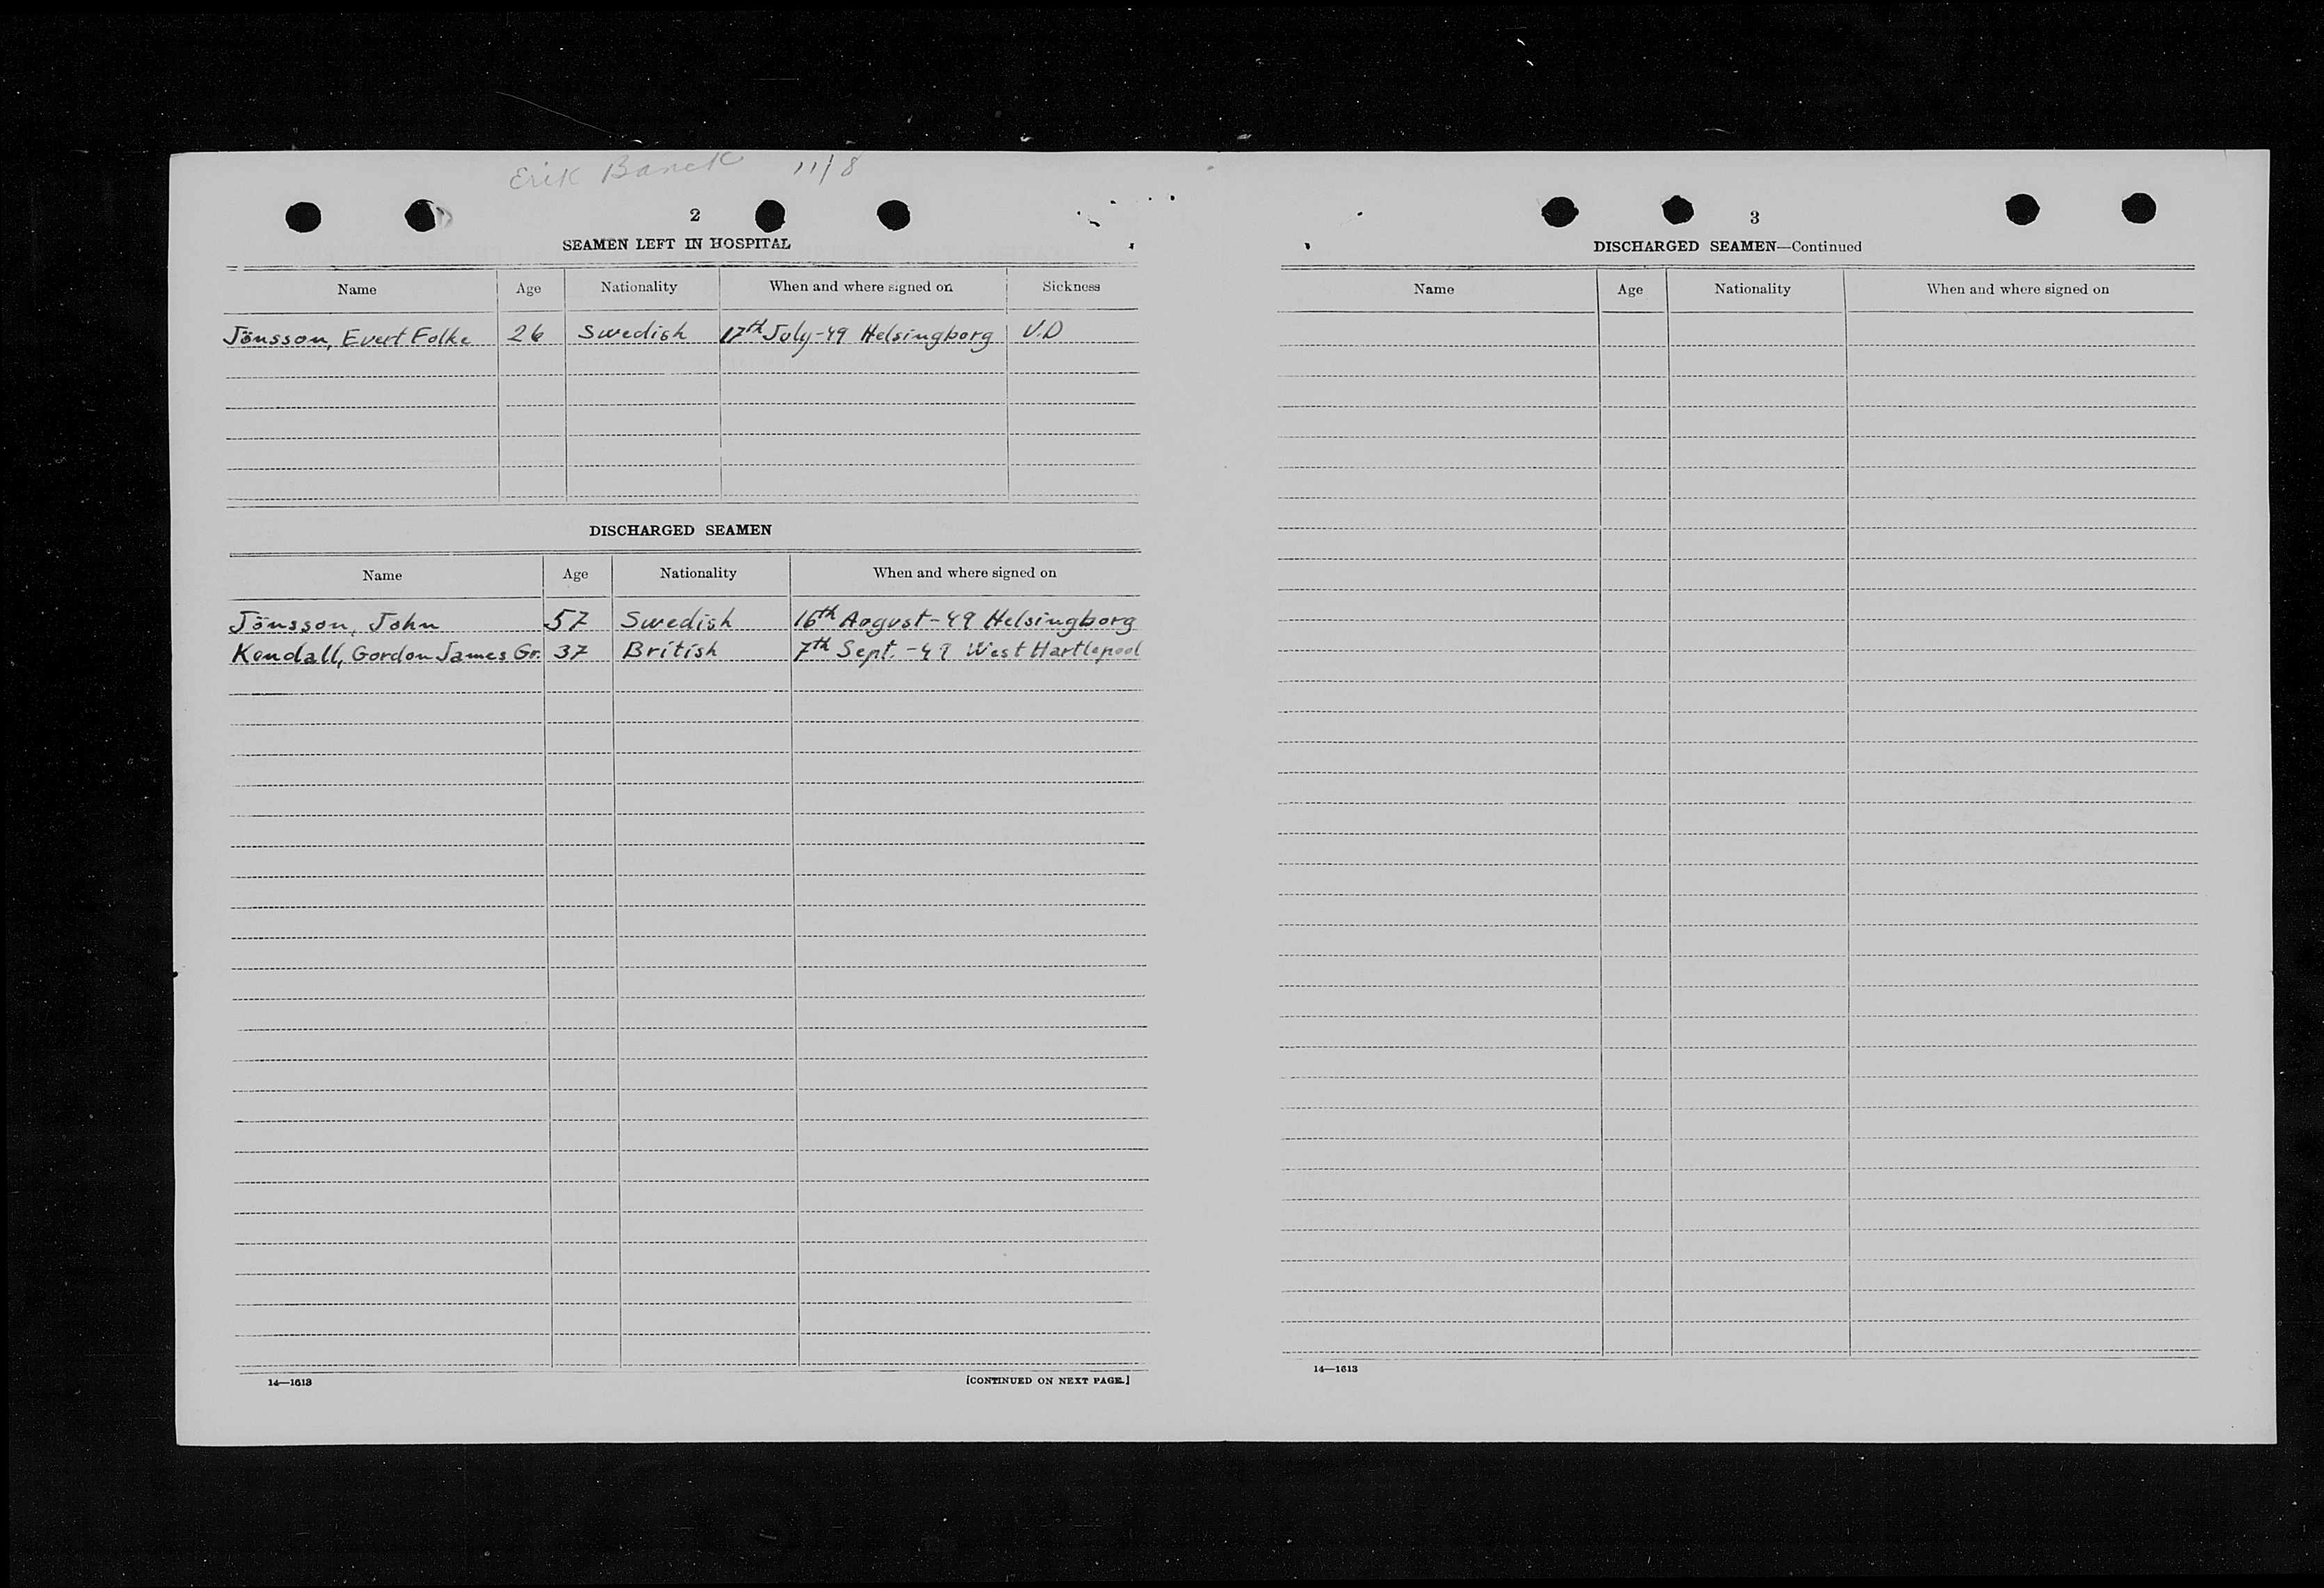 Erik Banck 11/8
2
SEAMEN LEFT IN HOSPITAL
Name Age Nationality When and where signed on Sickness
Jönsson, Evert Folke 26 Swedish 17th July-49 Helsingborg V.D
DISCHARGED SEAMEN
Name Age Nationality When and where signed on
Jönsson, John 57 Swedish 16th August-49 Helsingborg
Kendall, Gordon James Gr. 37 British 7th Sept.-49 West Hartlepool
14—1613 [CONTINUED ON NEXT PAGE.]
3
DISCHARGED SEAMEN—Continued
Name Age Nationality When and where signed on
14—1613